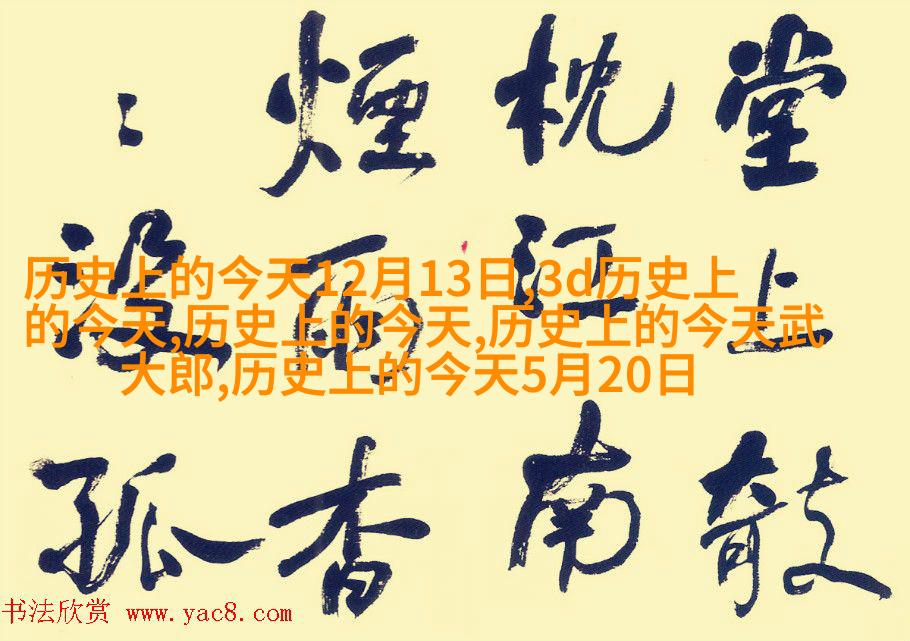 堂上攲
枕江南
煙雨杳
〻没孤
历史上的今天12月13日,3d历史上
的今天,历史上的今天,历史上的今天武
大郎,历史上的今天5月20日
书法欣赏 www.yac8.com